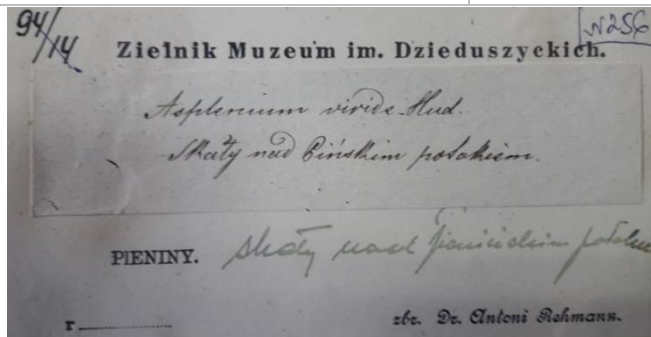 94/14
N256
Zielnik Muzeum im. Dzieduszyckich.
Asplenium viride Hud.
Skały nad Pińskim potokiem.
PIENINY. Skały nad pienińskim
r
zbr. Dr. Antoni Rehmann.